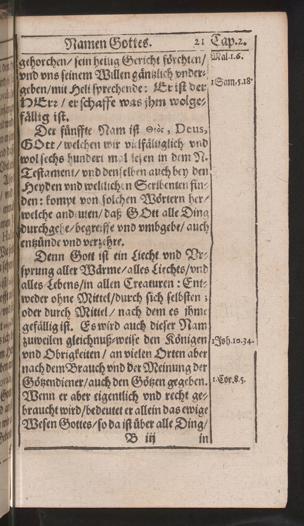 Namen Gottes. 21 Cap.2.
gehorchen/ sein heilig Gericht förchten/
vnd vns seinem Willen gäntzlich vnder-
geben/ mit Heli sprechende: Er ist der
HErr/ er schaffe was jhm wolge-
fällig ist.
Der fünffte Nam ist Θεὸς, Deus,
GOtt/ welchen wir vielfältiglich vnd
wol sechs hundert mal lesen in dem N.
Testament/ vnd denselben auch bey den
Heyden vnd weltlichen Scribenten fin-
den: kompt von solchen Wörtern her/
welche andeuten/ daß GOtt alle Ding
durchgehe/ begreiffe vnd vmbgebe/ auch
entzünde vnd verzehre.
Denn Gott ist ein Liecht vnd Vr-
sprung aller Wärme/ alles Liechtes/ vnd
alles Lebens/ in allen Creaturen: Ent-
weder ohne Mittel/ durch sich selbsten;
oder durch Mittel/ nach dem es jhme
gefällig ist. Es wird auch dieser Nam
zuweilen gleichnuß-weise den Königen
vnd Obrigkeiten/ an vielen Orten aber
nach dem Brauch vnd der Meinung der
Götzendiener/ auch den Götzen gegeben.
Wenn er aber eigentlich vnd recht ge-
braucht wird/ bedeutet er allein das ewige
Wesen Gottes/ so da ist über alle Ding/
B iij in
Mal.1.6.
1 Sam.3.18.
1 Joh.10.34.
1.Cor.8.5.